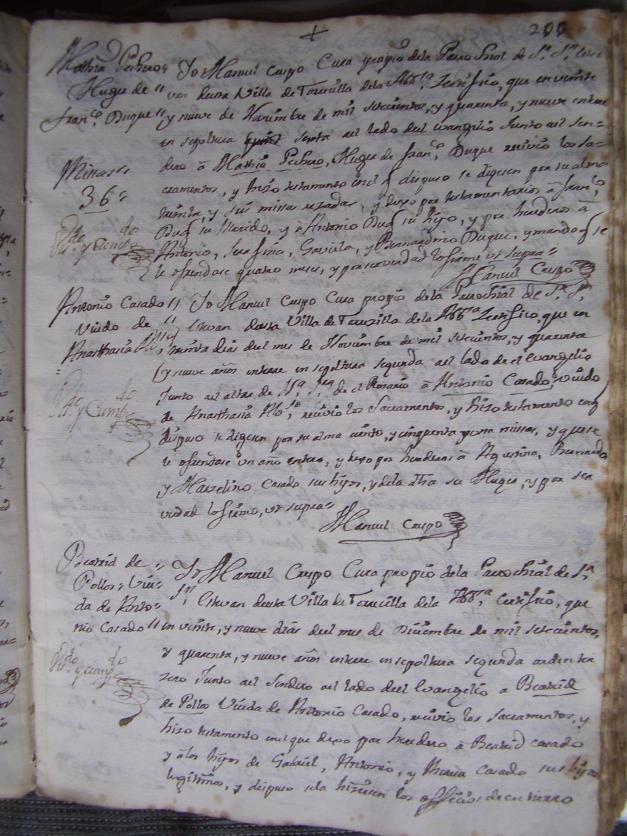 200
Mathia Pechero
Muger de
Franco Duque
Misas
36
Yo Manuel Crespo Cura propio dela Parrochial de Sn
van desta Villa de Torrecilla dela Abbsa Zertifico, que en veinte
y nueve de Noviembre de mil setecientos, y quarenta, y nueve enterre
en sepoltura sexta al lado del evangelio Junto al Sen
dero à Mathia Pechero, Muger de Franco Duque recivio los Sa
cramentos, y hizo testamento dispuso se digesen por su alma
treinta, y seis misas rezadas, y dexo por testamentarios à Franco
Duq su Marido, y à Antonio Duq su hijo, y por herederos à
Antonio, Gavriela, y Bernardino Duque, y mando se
le ofrendase quatro meses, y por ser verdad lo firme ut supra
Manuel Crespo
Antonio Casado
Viudo de
Anasthasia
Yo Manuel Crespo Cura propio dela Parrochial de Sn
Estevan desta Villa de Torrezilla dela Abbsa Zertifico, que en
treinta dias del mes de Noviembre de mil setecientos, y quarenta
y nueve años enterre en sepoltura segunda al lado de el evangelio
Junto al altar de Na Sra de el Rosario à Antonio Casado, viudo
de Anasthasia recivio los Sacramentos, y hizo testamento
dispuso se digesen por su alma ciento, y cinquenta y una misas, y que se
le ofrendase un año entero, y dexo por herederos à Agustina, Bernardo
y Marzelino Casado sus hijos, y dela dha su Muger, y por ser
verdad lo firmo, ut supra
Manuel Crespo
Beatriz de
Pollos Viu
da de Anto
nio Casado
Yo Manuel Crespo Cura propio dela Parrochial de Sn
Estevan desta Villa de Torrecilla dela Abbsa Certifico, que
en veinte, y nueve dias del mes de Diciembre de mil setecientos,
y quarenta, y nueve años enterre en sepoltura segunda orden ter
zero Junto al Sendero al lado del Evangelio a Beatriz
de Pollos Viuda de Antonio Casado, recivio los Sacramentos, y
hizo testamento en el que dexo por heredero à Beatriz casado
y à los hijos de Gabriel, Antonio, y Maria Casado sus hijos
legitimos, y dispuso se la hiciesen los officios de entierro